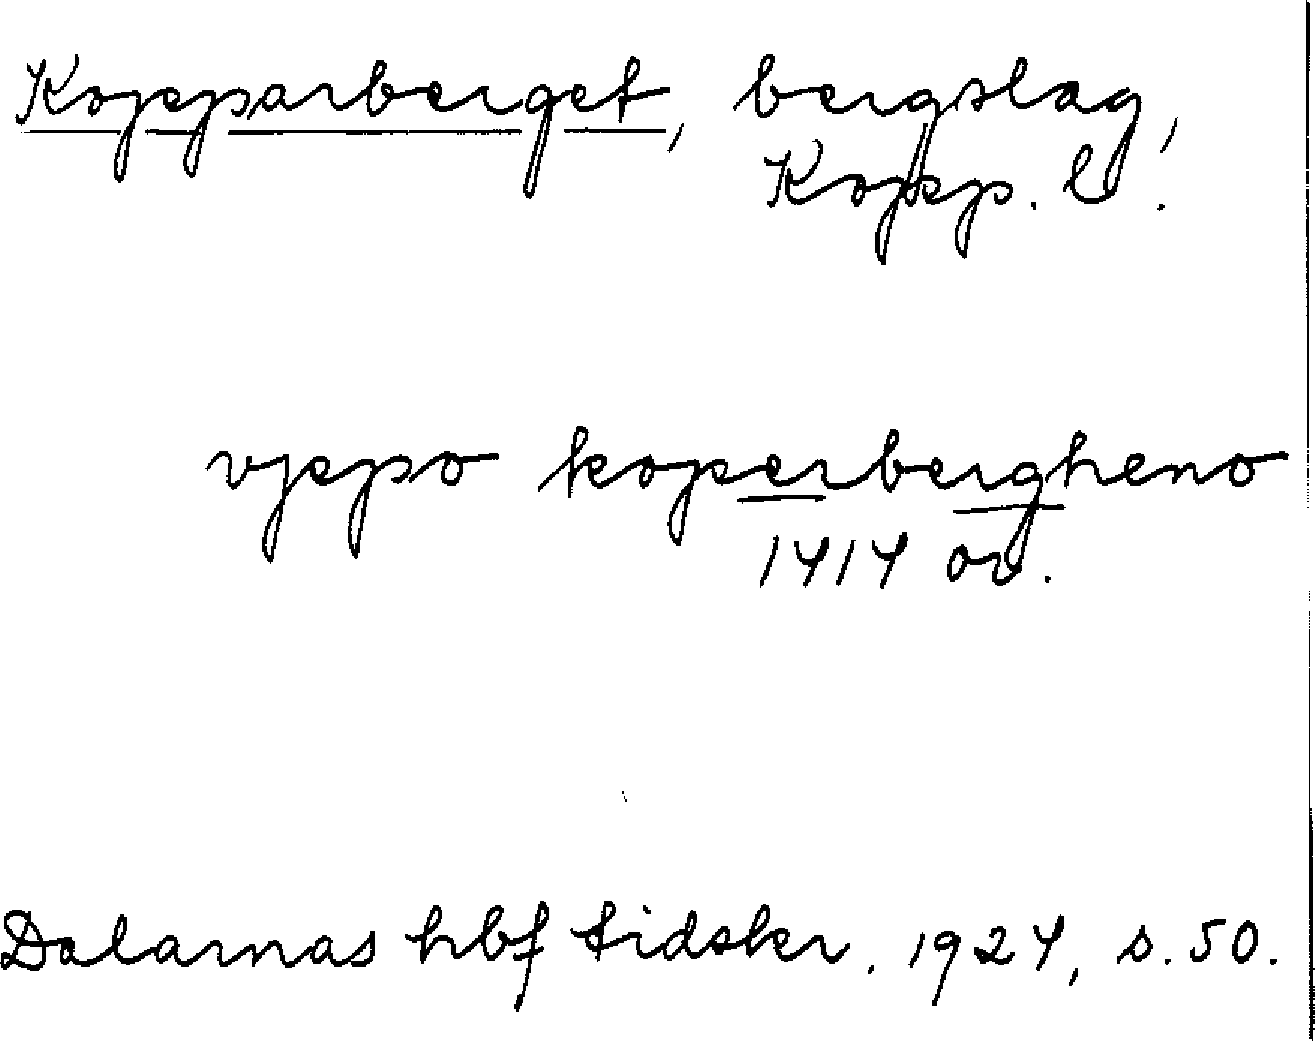 Kopparberget, bergslag,
Kopp. l.
vppo koperbergheno
1414 or.
Dalarnas hbf tidskr. 1924, s. 50.